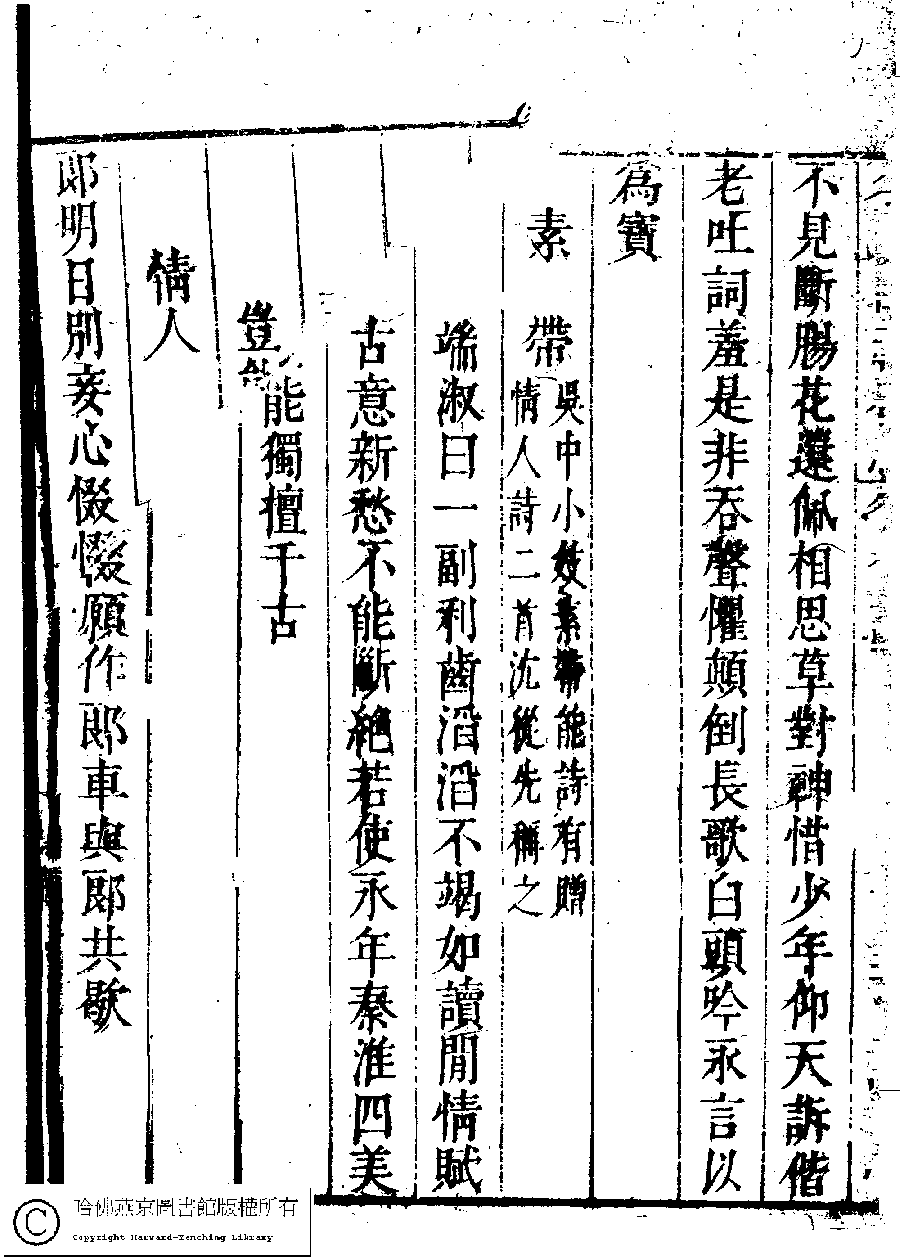 不見斷腸花還佩相思草對神惜少年仰天訴偕
老吐詞羞是非吞聲懼顛倒長歌白頭吟永言以
為寶
素帶
吳中小妓素帶能詩有贈
情人詩二首沈從先稱之
端淑曰一副利齒滔滔不竭如讀閒情賦
古意新愁不能斷絕若使永年秦淮四美
豈能獨擅千古
情人
郎明日別妾心惙惙願作郎車輿郎共歇
哈佛燕京圖書館版權所有
Copyright Harvard-Yenching Library